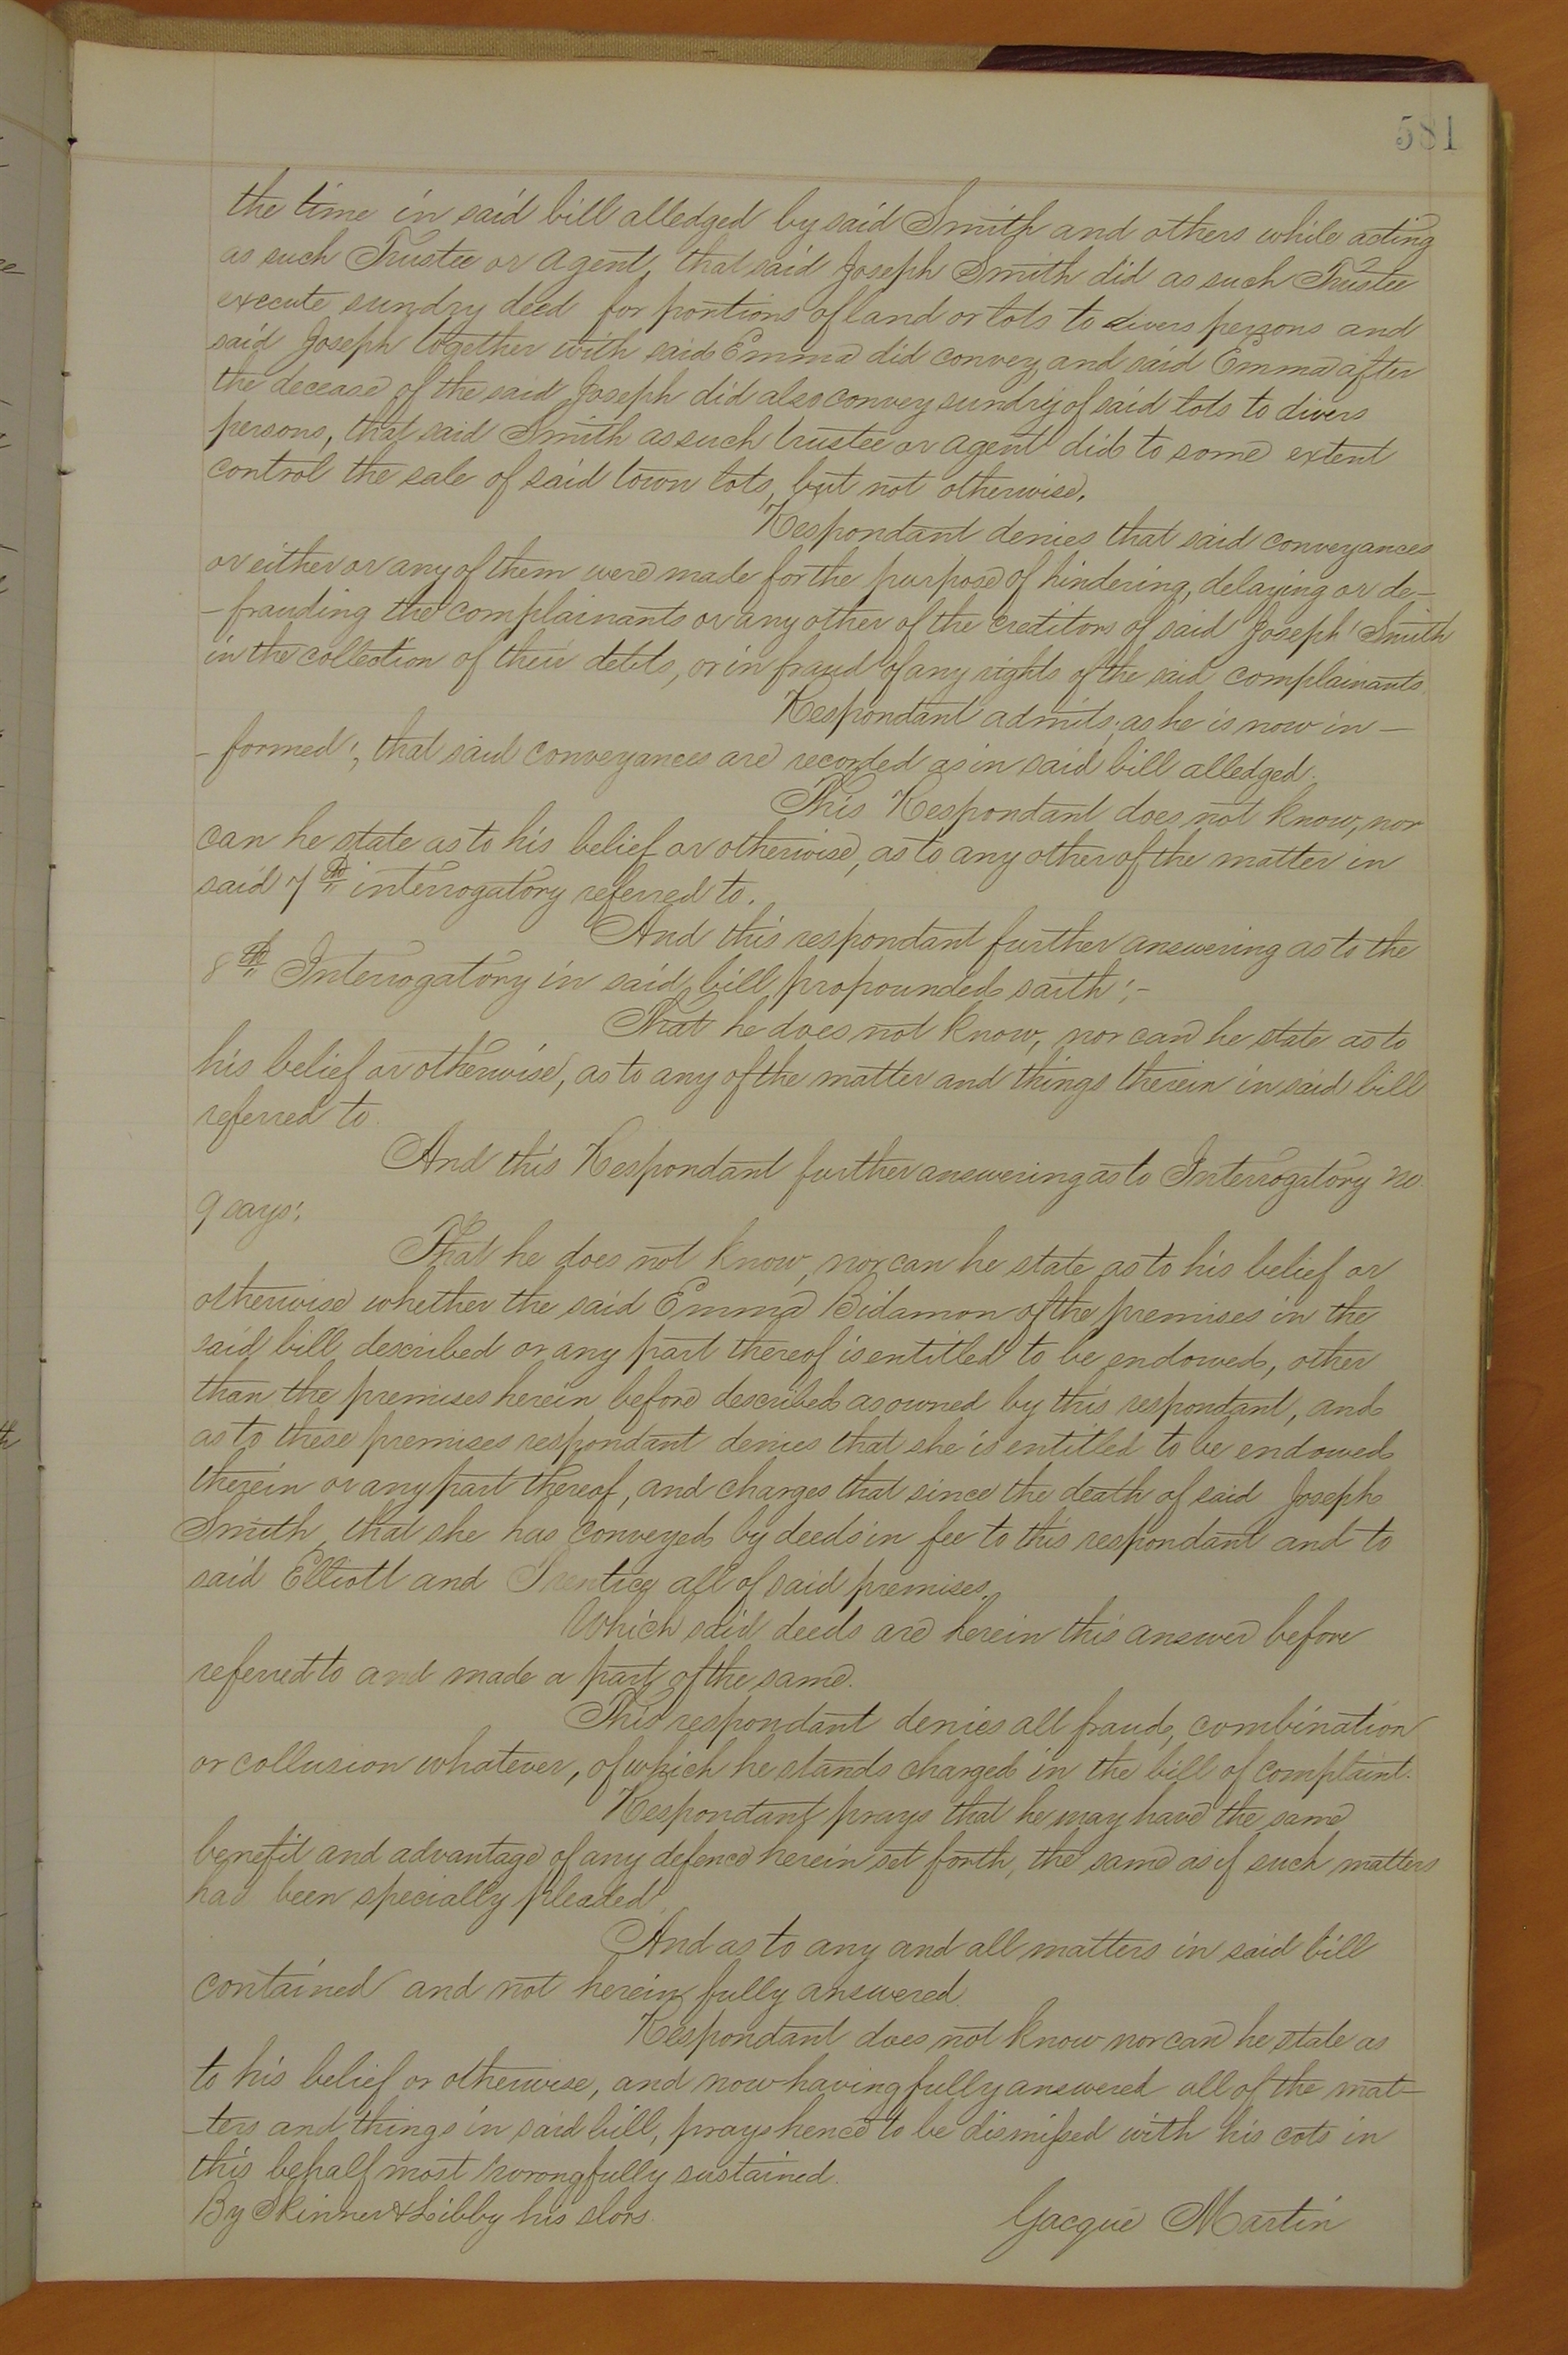 581
the time in said bill alledged by said Smith and others while acting
as such Trustee or agent, that said Joseph Smith did as such Trustee
execute sundry deed for portions of land or lots to divers persons and
said Joseph together with said Emma did convey, and said Emma after
the decease of the said Joseph did also convey sundry of said lots to divers
persons, that said Smith as such trustee or agent did to some extent
control the sale of said town lots, but not otherwise.
Respondant denies that said conveyances
or either or any of them were made for the purpose of hindering, delaying or de-
-frauding the complainants or any other of the creditors of said Joseph Smith
in the collection of their debts, or in fraud of any rights of the said complainants
Respondant admits, as he is now in-
-formed, that said conveyances are recorded as in said bill alledged.
This Respondant does not know, nor
can he state as to his belief or otherwise, as to any other of the matter in
said 7th interrogatory referred to.
And this respondant further answering as to the
8th Interrogatory in said bill propounded saith:-
That he does not know, nor can he state as to
his belief or otherwise, as to any of the matter and things therein in said bill
referred to.
And this Respondant further answering as to Interrogatory No.
9 says:
That he does not know, nor can he state as to his belief or
otherwise whether the said Emma Bidamon of the premises in the
said bill described or any part thereof is entitled to be endowed, other
than the premises herein before described as owned by this respondant, and
as to these premises respondant denies that she is entitled to be endowed
therein or any part thereof, and charges that since the death of said Joseph
Smith, that she has conveyed by deeds in fee to this respondant and to
said Elliott and all of said premises.
Which said deeds are herein this answer before
referred to and made a part of the same.
This respondant denies all fraud, combination
or collusion whatever, of which he stands charged in the bill of complaint.
Respondant prays that he may have the same
benefit and advantage of any defence herein set forth, the same as if such matters
had been specially pleaded.
And as to any and all matters in said bill
contained and not herein fully answered.
Respondant does not know nor can he state as
to his belief or otherwise, and now having fully answered all of the mat-
-ters and things in said bill, prays hence to be dismissed with his cots in
this behalf most wrongfully sustained.
By Skinner & Libby his slors.
Gacque Martin